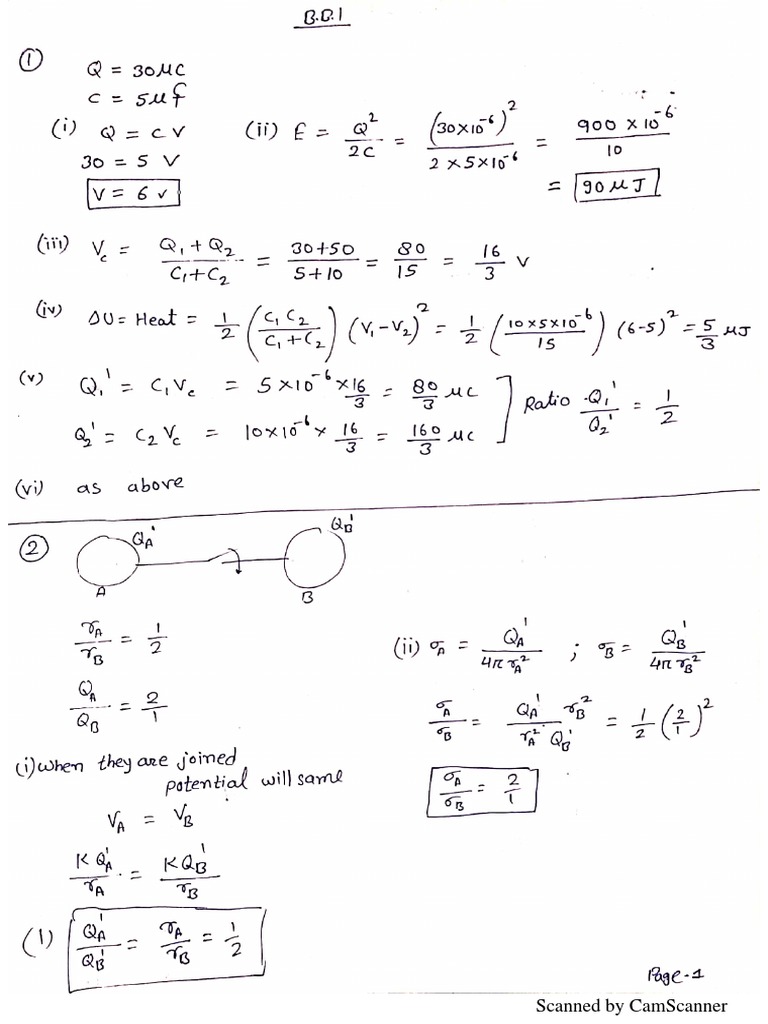 B.B.1
① Q = 30μC
C = 5μf
(i) Q = CV
30 = 5 V
V = 6 v
(ii) E = Q²/2C = (30×10⁻⁶)²/2×5×10⁻⁶ = 900 × 10⁻⁶/10
= 90μJ
(iii) V_c = Q₁+Q₂/C₁+C₂ = 30+50/5+10 = 80/15 = 16/3 V
(iv) ΔU = Heat = 1/2 (C₁C₂/C₁+C₂) (V₁-V₂)² = 1/2 (10×5×10⁻⁶/15) (6-5)² = 5/3 μJ
(v) Q₁' = C₁V_c = 5×10⁻⁶×16/3 = 80/3 μC
Q₂' = C₂V_c = 10×10⁻⁶× 16/3 = 160/3 μC ] Ratio Q₁'/Q₂' = 1/2
(vi) as above
② Q_A' Q_B'
A B
r_A/r_B = 1/2
Q_A/Q_B = 2/1
(i) when they are joined
potential will same
V_A = V_B
KQ_A'/r_A = KQ_B'/r_B
(1) Q_A'/Q_B' = r_A/r_B = 1/2
(ii) σ_A = Q_A'/4π r_A² ; σ_B = Q_B'/4π r_B²
σ_A/σ_B = Q_A' r_B²/r_A² Q_B' = 1/2 (2/1)²
σ_A/σ_B = 2/1
Page-1
Scanned by CamScanner